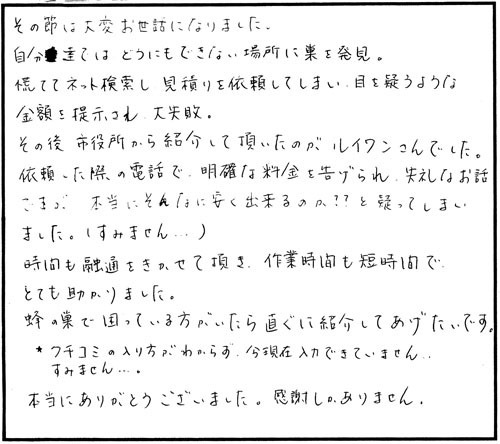 その節は大変お世話になりました。
自分達ではどうにもできない場所に巣を発見。
慌ててネット検索し見積りを依頼してしまい、目を疑うような
金額を提示され、大失敗。
その後市役所から紹介して頂いたのがルイワンさんでした。
依頼した際の電話で、明確な料金を告げられ、失礼なお話
ですが 本当にそんなに安く出来るのか??と疑ってしまい
ました。(すみません...)
時間も融通をきかせて頂き、作業時間も短時間で
とても助かりました。
蜂の巣で困っている方がいたら直ぐに紹介してあげたいです。
*クチコミの入り方がわからず、今現在入力できていません..
すみません...。
本当にありがとうございました。感謝しかありません。